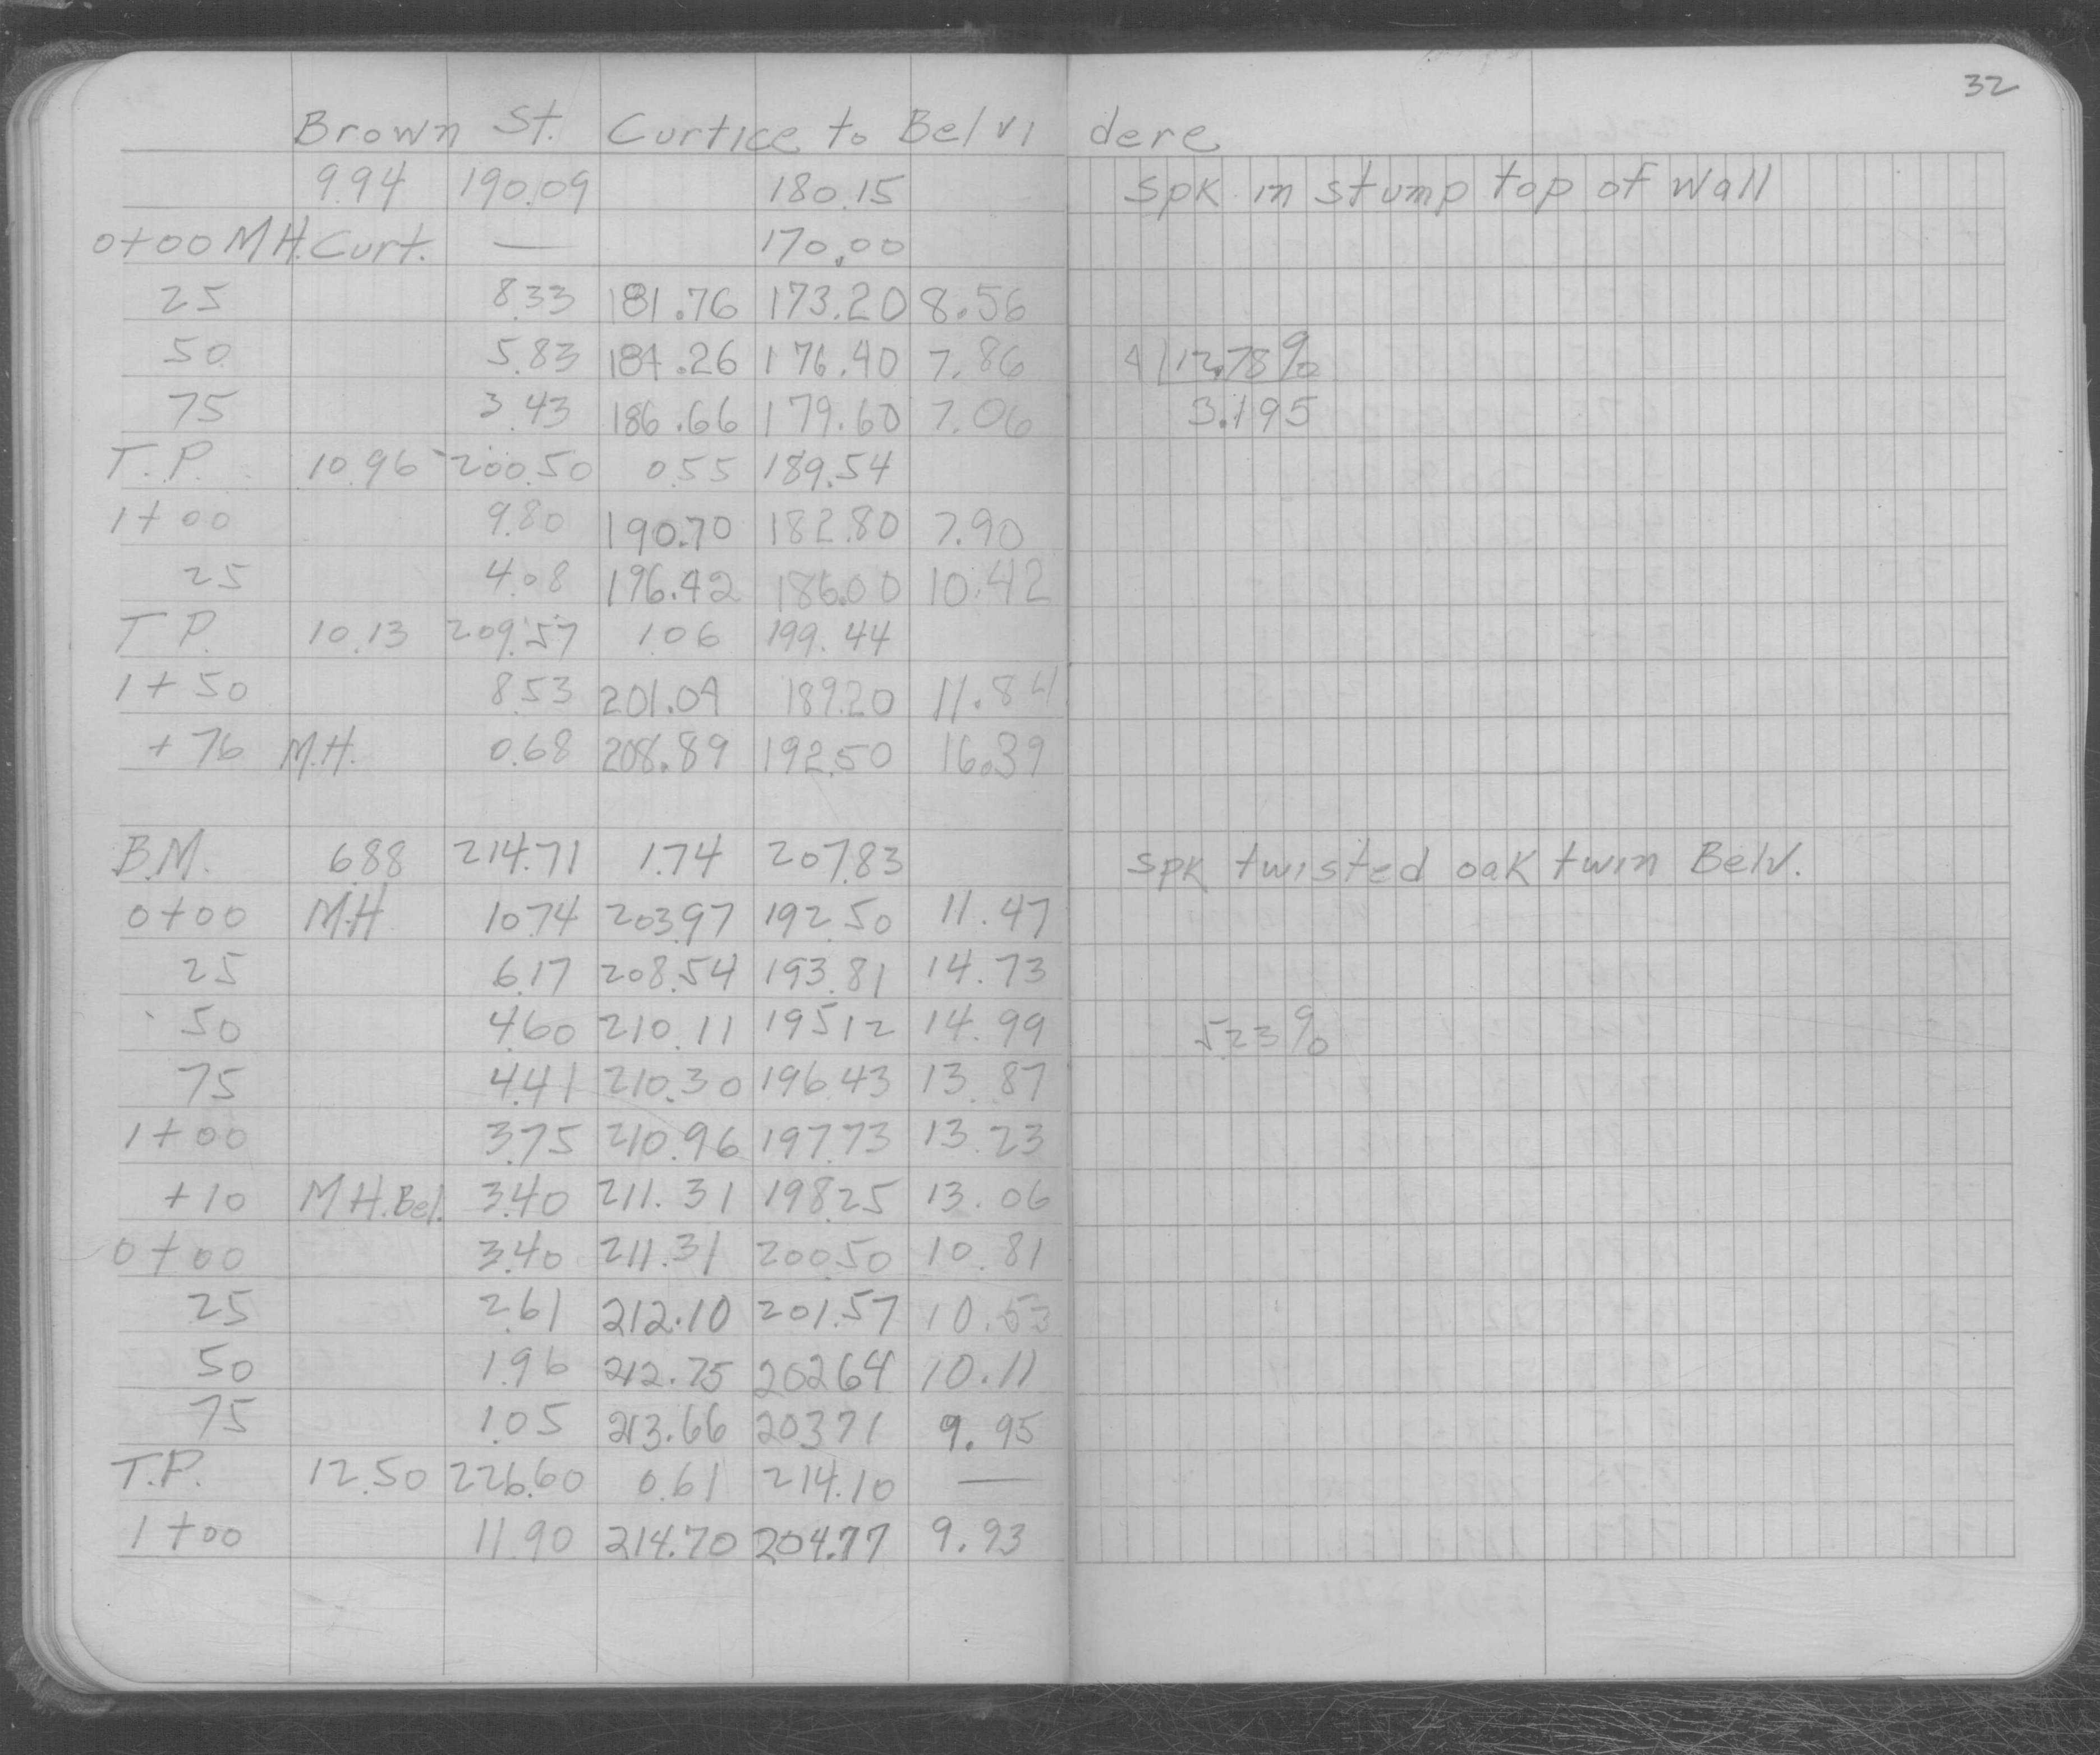 32
Brown St. Curtice to Belvi dere
9.94 190.09 180.15 spk in stump top of Wall
0+00 M H. Curt. — 170.00
25 8.33 181.76 173.20 8.56
50 5.83 184.26 176.40 7.86 4 12.78%
75 3.43 186.66 179.60 7.06 3.195
T.P. 10.96 200.50 0.55 189.54
1+00 9.80 190.70 182.80 7.90
25 4.08 196.42 186.00 10.42
T P. 10.13 209.57 1.06 199.44
1+50 8.53 201.04 189.20 11.84
+76 M.H. 0.68 208.89 192.50 16.39
B.M. 6.88 214.71 1.74 207.83 spk twisted oak twin Belv.
0+00 M.H 10.74 203.97 192.50 11.47
25 6.17 208.54 193.81 14.73
50 4.60 210.11 195.12 14.99 5.23%
75 4.41 210.30 196.43 13.87
1+00 3.75 210.96 197.73 13.23
+10 M H. Bel. 3.40 211.31 198.25 13.06
0+00 3.40 211.31 200.50 10.81
25 2.61 212.10 201.57 10.53
50 1.96 212.75 202.64 10.11
75 1.05 213.66 203.71 9.95
T.P. 12.50 226.60 0.61 214.10 —
1+00 11.90 214.70 204.77 9.93